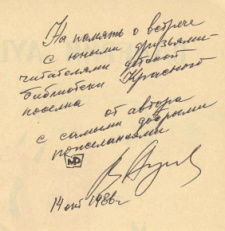 На память о встрече
с юными друзьями-
читателями детской
библиотеки Красного
поселка
от автора
с самыми добрыми
пожеланиями
МР
14 окт 1986 г